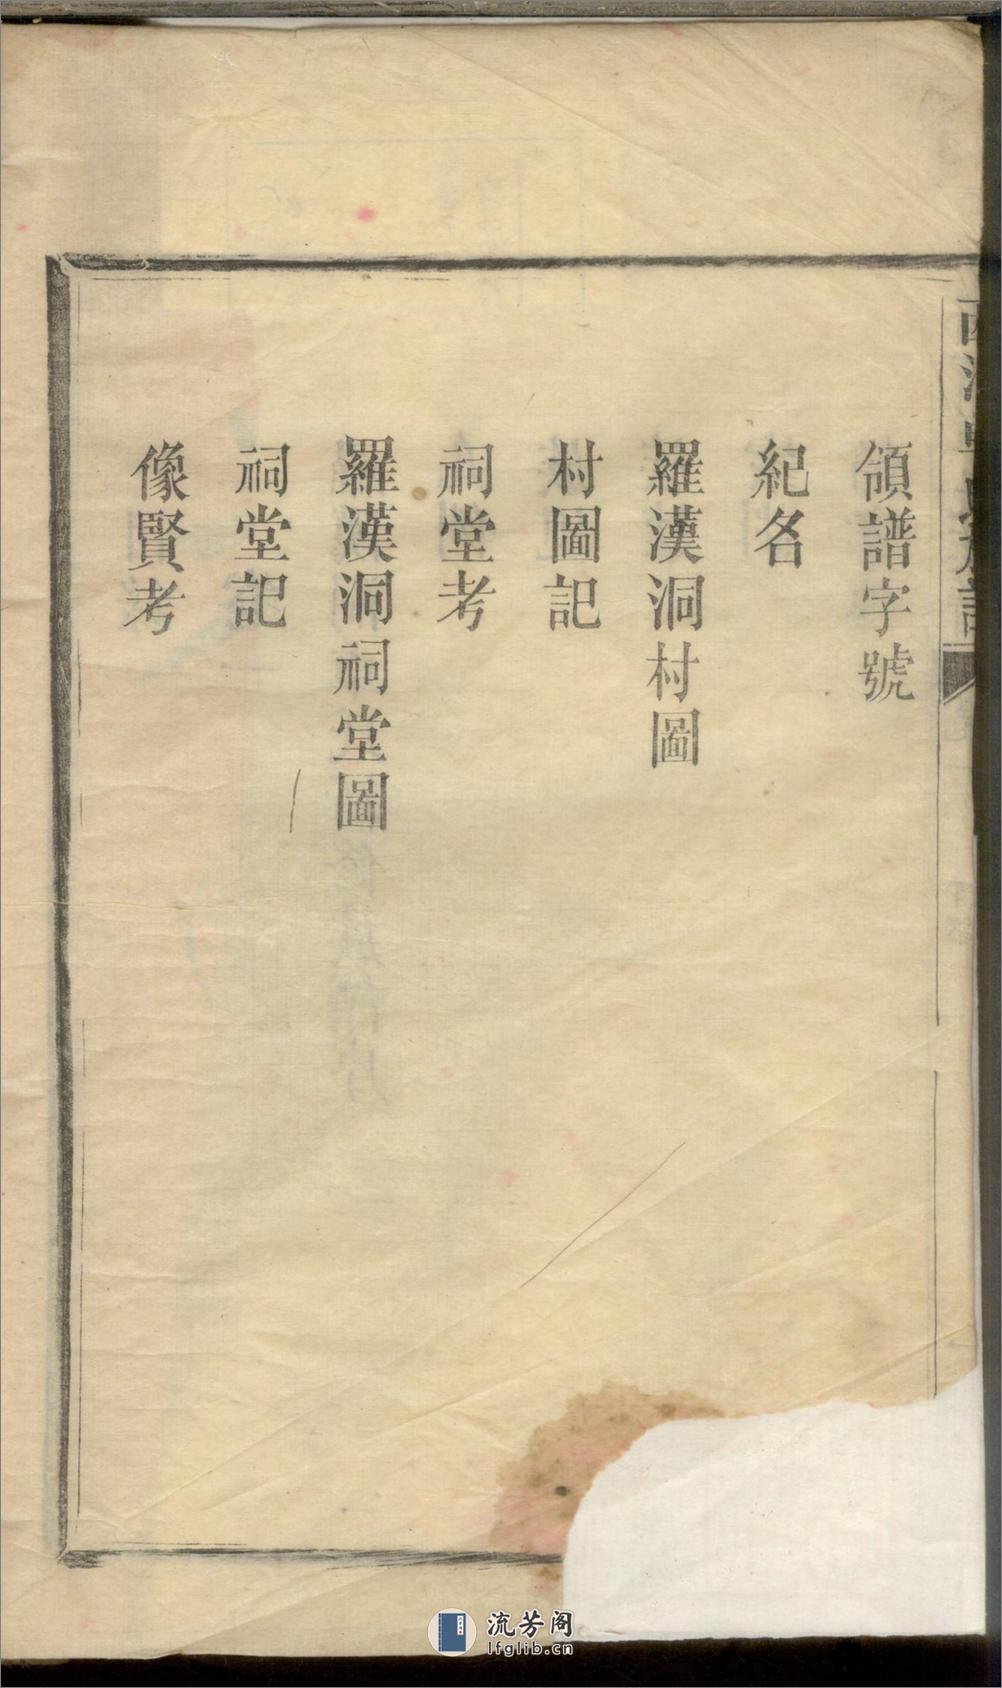 領譜字號
紀名
羅漢洞村圖
村圖記
祠堂考
羅漢洞祠堂圖
祠堂記
像賢考
流芳阁
lfglib.cn